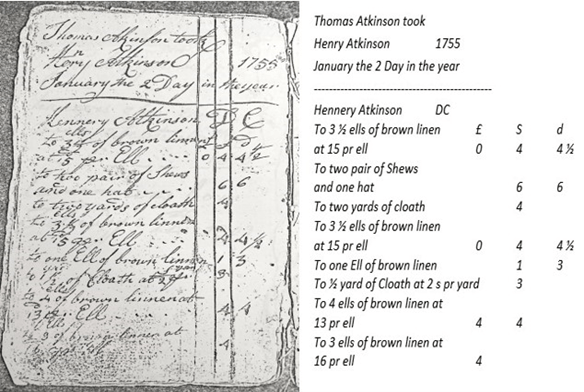 Thomas Atkinson took
Henry Atkinson 1755
January the 2 Day in the year
Hennery Atkinson D C
to 3½ ells of brown linen £ S d
at 15 pr Ell 0 4 4½
to two pair of Shews
and one hat 6 6
to two yards of cloath 4
to 3½ ells of brown linnen
at 15 pr Ell 4 4½
to one Ell of brown linnen 1 3
to ½ yd of Cloath at 2s
to 4 of brown linnen at
13 pr Ell 4 4
3 of brown linnen at
4
Thomas Atkinson took
Henry Atkinson 1755
January the 2 Day in the year
Hennery Atkinson DC
To 3 ½ ells of brown linen £ S d
at 15 pr ell 0 4 4 ½
To two pair of Shews
and one hat 6 6
To two yards of cloath 4
To 3 ½ ells of brown linen
at 15 pr ell 0 4 4 ½
To one Ell of brown linen 1 3
To ½ yard of Cloath at 2 s pr yard 3
To 4 ells of brown linen at
13 pr ell 4 4
To 3 ells of brown linen at
16 pr ell 4